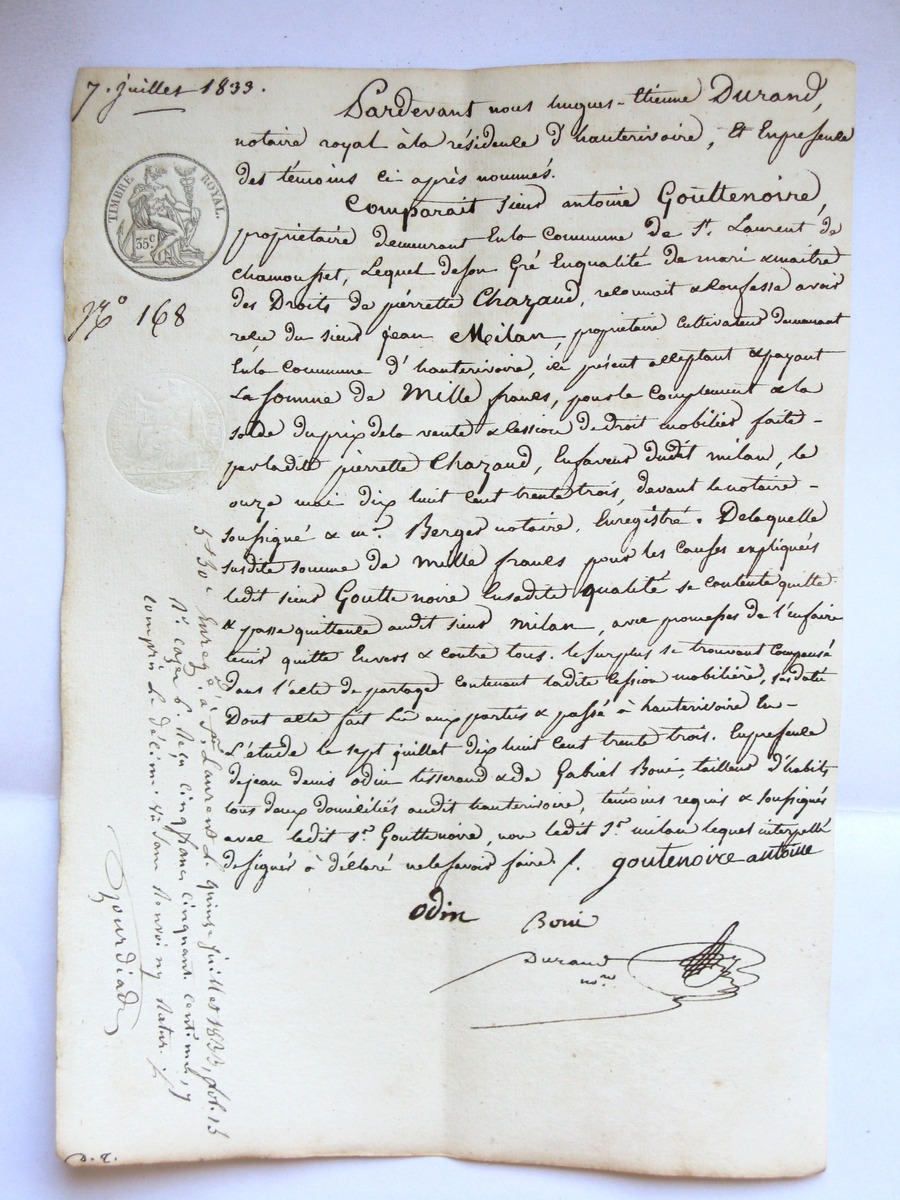 7. juillet 1833.
TIMBRE ROYAL.
35c
No 168
Pardevant nous hugues-Etienne Durand,
notaire royal à la résidence d'hauterivoire, et En présence
des témoins ci après nommés.
Comparait sieur antoine Gouttenoire,
propriétaire demeurant En la Commune de St. Laurent de
chamousset, Lequel de son gré En qualité de mari & maitre
des Droits de pierrette Chazaud, reconnoit & Confesse avoir
reçu du sieur jean Milan, propriétaire Cultivateur demeurant
En la Commune d'hauterivoire, ici présent acceptant & payant
La somme de Mille francs, pour le Complement & la
solde du prix de la vente & Cession de droit mobilier faite -
par ladite pierrette Chazaud, En faveur dudit milan, le
onze mai dix huit Cent trente trois, devant le notaire -
soussigné & me. Berger notaire, Enregistré. De laquelle
susdite somme de mille francs pour les causes expliquées
ledit sieur Goutte noire En sadite qualité se contente quitte
& passe quittance audit sieur milan, avec promesse de l'en faire
tenir quitte Envers & contre tous. le surplus se trouvant Compensé
dans l'acte de partage contenant ladite Cession mobilière, susdaté
Dont acte fait Lu aux parties & passé à hauterivoire En -
L'étude le sept juillet dix huit Cent trente trois. En présence
de jean denis odin tisserand & de Gabriel Boni, tailleur d'habits
tous deux domiciliés audit hauterivoire, témoins requis & soussignés
avec ledit Sr. Gouttenoire, non ledit Sr milan lequel interpellé
de signer à déclaré ne le savoir faire ./.
goutenoire antoine
odin
Boni
Durand
nre
5f 50c Enreg. à St. Laurent le quinze juillet 1833, fol. 15
Ro cazes 6. Reçu cinq francs cinquante centimes, y
compris le décime
Gourdiat